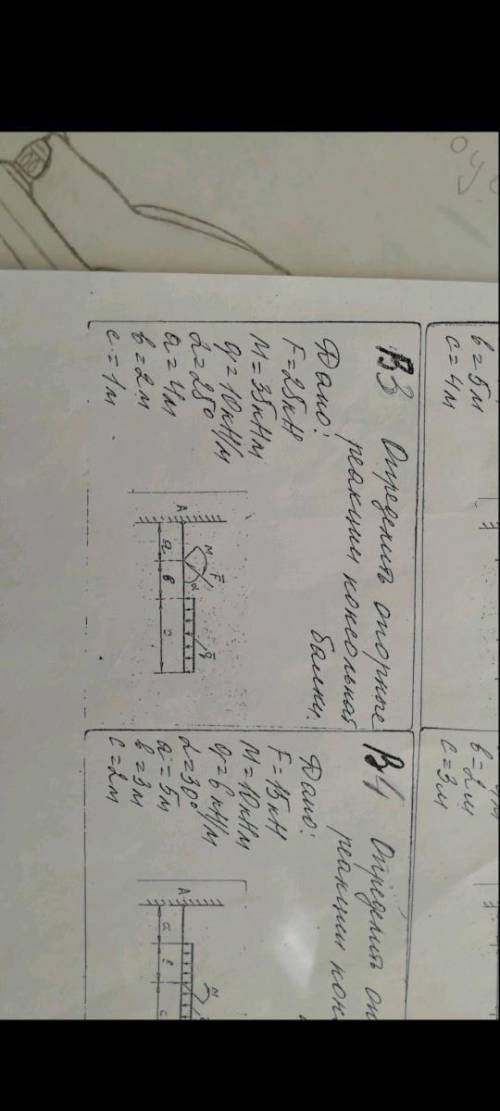 оу
в=5м
с=4м
В3 Определить опорные
реакции консольной
балки.
Дано:
F=25кН
М=35кНм
q=10кН/м
α=25°
а=4м
в=2м
с=1м
А
М
F
α
q
а
в
с
в=2м
с=3м
В4 Определить оп
реакции кон
Дано:
F=15кН
М=10кНм
q=6кН/м
α=30°
а=5м
в=3м
с=2м
А
а
в
с